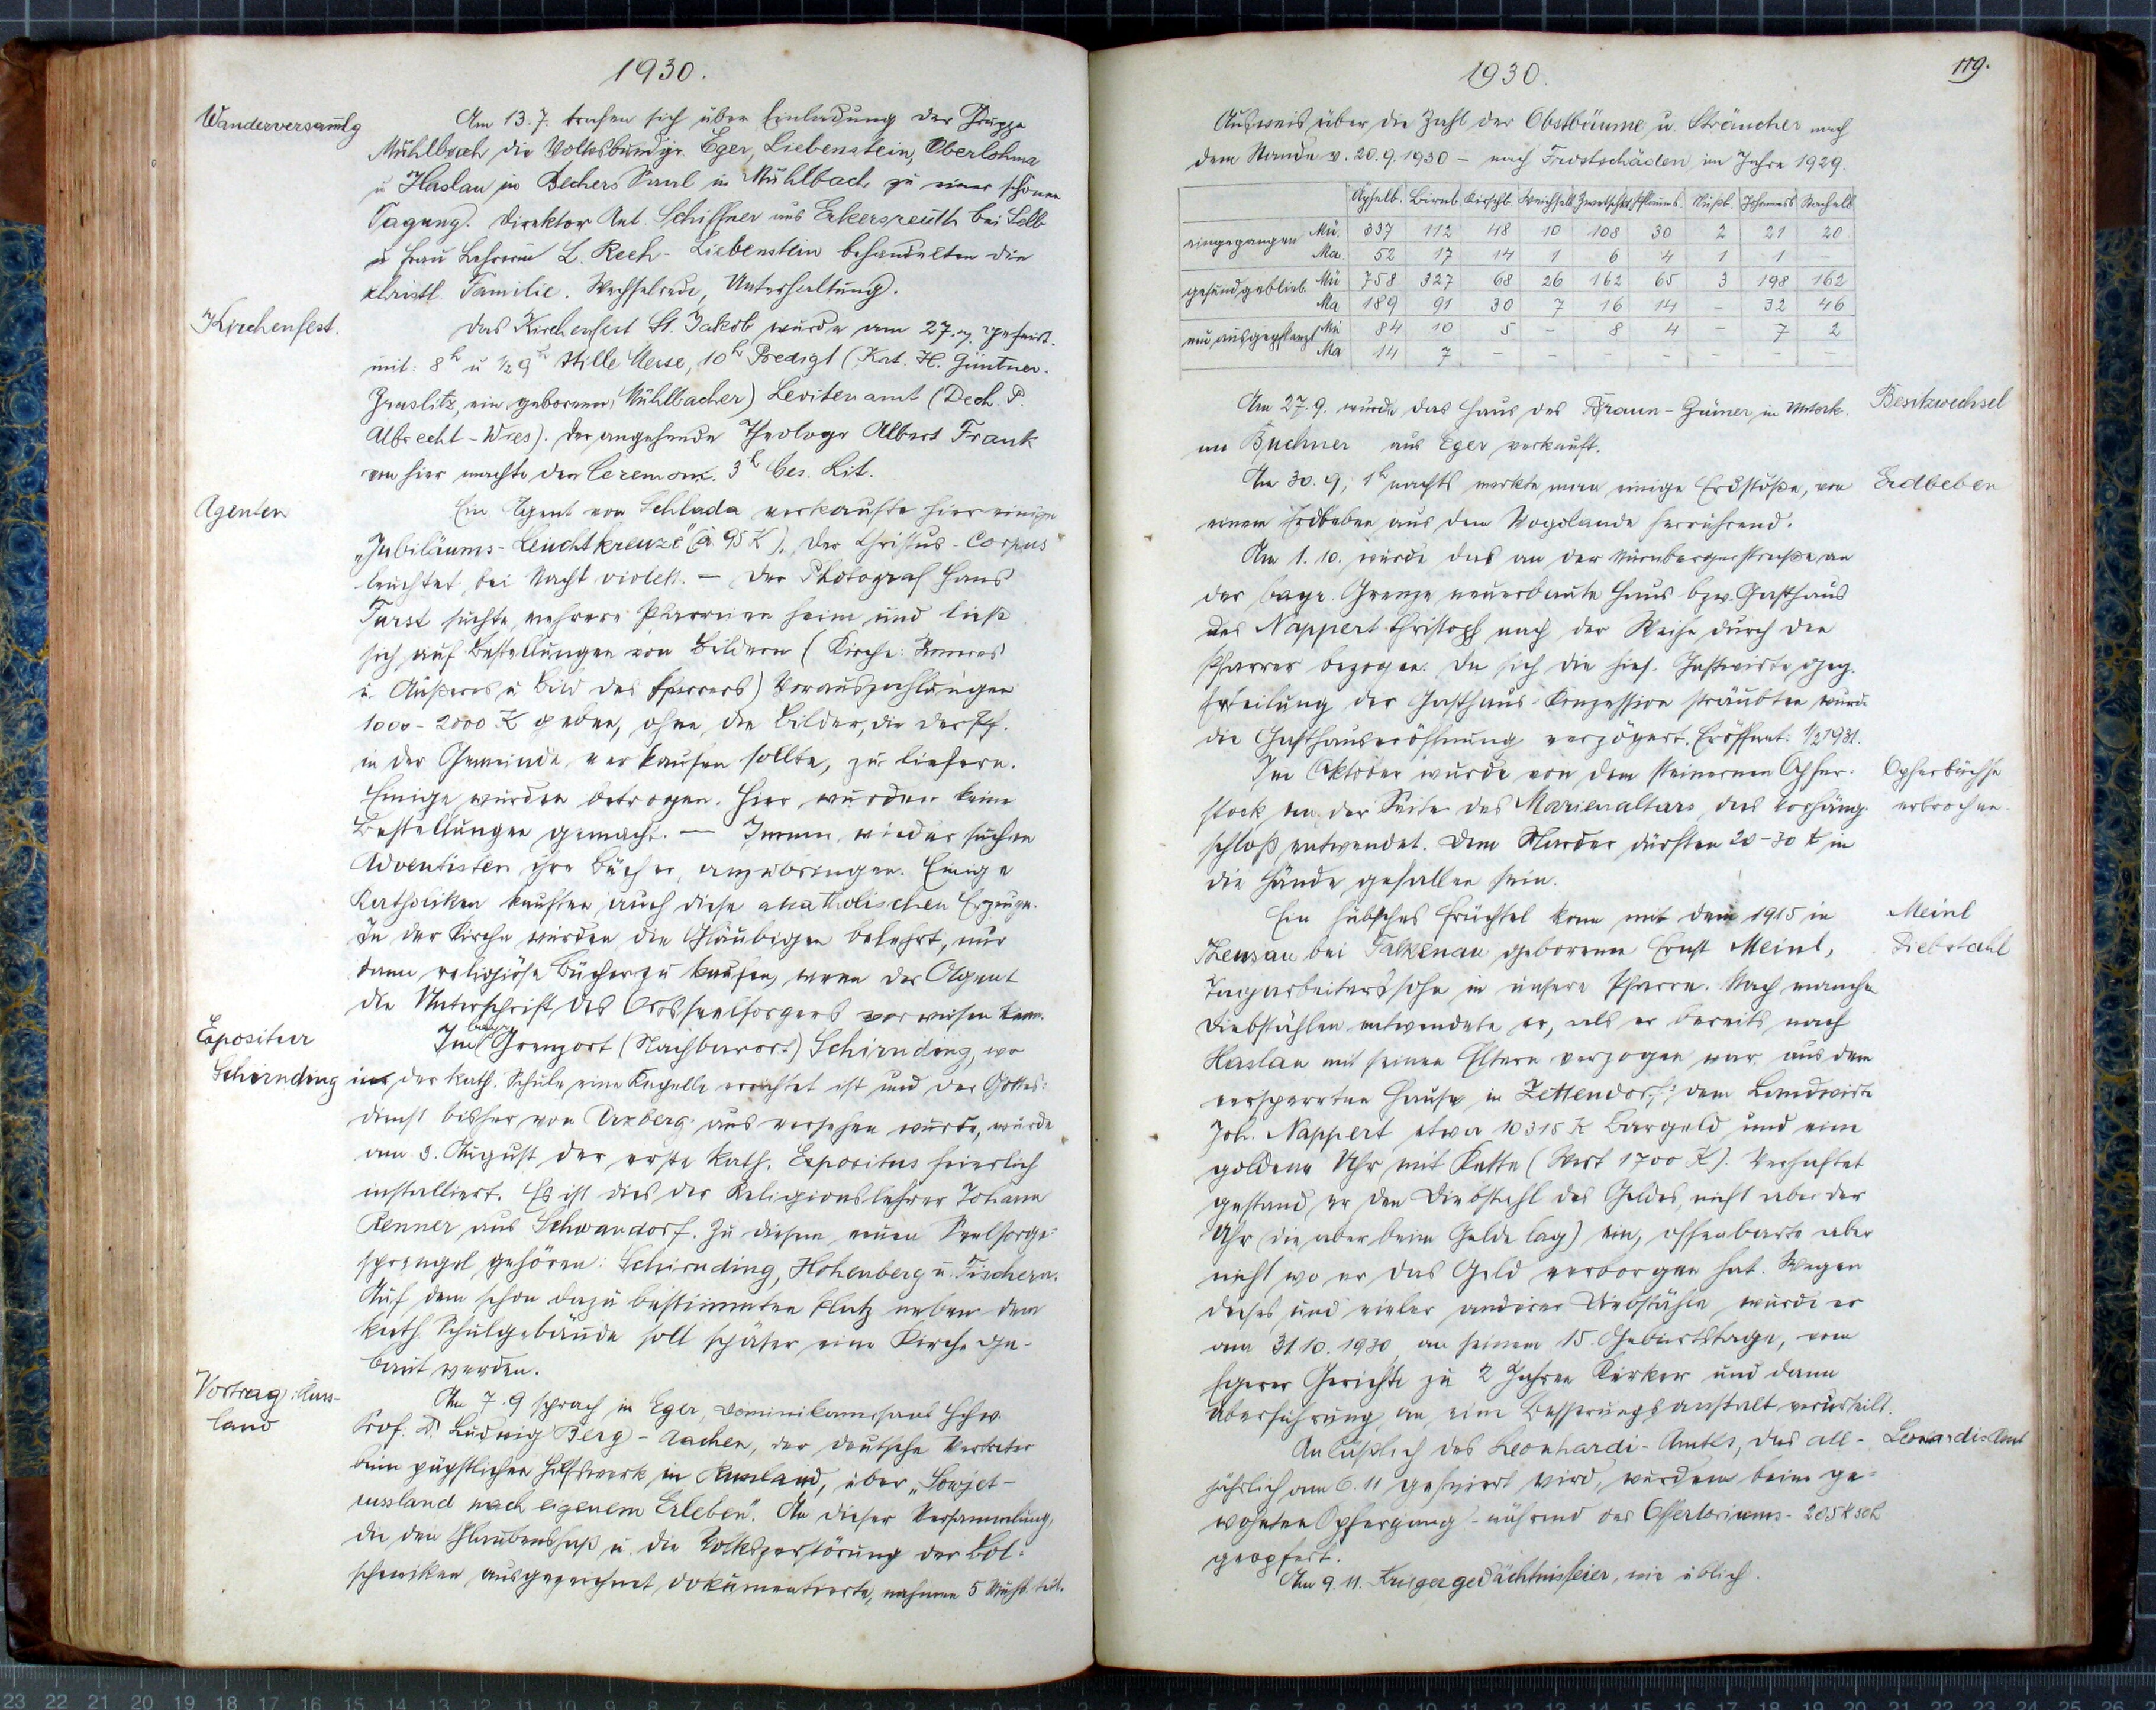 1930.
Wanderversamlg
Am 13.7. trafen sich über Einladung der Gruppe
Mühlbach die Volksbundgr. Eger, Liebenstein, Oberlohma
u Haslau in Bechers Saal in Mühlbach zu einer schönen
Tagung. Direktor Ant. Schiffner aus Erkersreuth bei Selb
u Frau Lehrerin L. Rech - Liebenstein behandelten die
christl. Familie. Wechselrede, Unterhaltung.
Kirchenfest.
Das Kirchenfest St. Jakob wurde am 27. 7. gefeiert.
mit: 8h u ½9h stille Messe, 10h Predigt (Kat. H. Güntner-
Graslitz, ein geborener Mühlbacher) Levitenamt (Dech. P.
Albrecht - Wies). Der angehende Theologe Albert Frank
von hier machte den Ceremon. 3h bes. Lit.
Agenten
Ein Agent von Schlada verkaufte hier einige
„Jubiläums-Leuchtkreuze" (à 95 K). Der Christus-Corpus
leuchtet bei Nacht violett. — Der Photograf Hans
Turst suchte mehrere Pfarreien heim und ließ
sich auf Bestellungen von Bildern (Kirche: Inneres
u. Äußeres u Bild des Pfarrers) Vorauszahlungen
1000 - 2000 K geben, ohne die Bilder, die der Pf.
in der Gemeinde verkaufen sollte, zu liefern.
Einige wurden betrogen. Hier wurden keine
Bestellungen gemacht. — Immer wieder suchen
Adventisten ihre Bücher anzubringen. Einige
Katholiken kauften auch diese akatholischen Erzeugn.
In der Kirche wurden die Gläubigen belehrt, nur
dann religiöse Bücher zu kaufen, wenn der Agent
die Unterschrift des Ortsseelsorgers vorweisen kann.
Expositur
Schirnding
Im bayr. Grenzort (Nachbarort) Schirnding, wo
in der kath. Schule eine Kapelle errichtet ist und der Gottes-
dienst bisher von Arzberg aus versehen wurde, wurde
am 3. August der erste kath. Expositus feierlich
installiert. Es ist dies der Religionslehrer Johann
Renner aus Schwandorf. Zu diesem neuen Seelsorge-
sprengel gehören: Schirnding, Hohenberg u. Fischern.
Auf dem schon dazu bestimmten Platz neben dem
kath. Schulgebäude soll später eine Kirche ge-
baut werden.
Vortrag: Russ-
land
Am 7.9 sprach in Eger, Dominikanersaal Hchw.
Prof. Dr. Ludwig Berg - Aachen, der deutsche Vertreter
beim päpstlichen Hilfswerk in Russland, über „Sowjet-
russland nach eigenem Erleben". An dieser Versammlung,
die den Glaubenshaß u. die Volkszerstörung der Bol-
schewiken ausgezeichnet dokumentierte, nahmen 5 Mühlb. teil.
1930.
119.
Ausweis über die Zahl der Obstbäume u. Sträucher nach
dem Stande v. 20.9.1930 - nach Frostschäden im Jahre 1929.
Äpfelb. Birnb. Kirschb. Weichselb. Zwetschk. Pflaumb. Nußb. Johannisb. Stachelb.
eingegangen Mü. 337 112 48 10 108 30 2 21 20
Ma 52 17 14 1 6 4 1 1 -
gesund geblieb. Mü 758 327 68 26 162 65 3 198 162
Ma 189 91 30 7 16 14 - 32 46
neu ausgepflanzt Mü 84 10 5 - 8 4 - 7 2
Ma 14 7 - - - - - - -
Am 27.9. wurde das Haus des Braun - in
an Buchner aus Eger verkauft.
Besitzwechsel
Am 30. 9, 1h nachts merkte man einige Erdstöße, von
einem Erdbeben aus dem Vogtlande herrührend.
Erdbeben
Am 1. 10. wurde das an der Nürnbergerstraße an
der bayr. Grenze neuerbaute Haus bzw. Gasthaus
des Nappert Christoph nach der Weihe durch den
Pfarrer bezogen. Da sich die hies. Gastwirte geg.
Erteilung der Gasthaus-Konzession sträubten wurde
die Gasthauseröffnung verzögert. Eröffnet: 1/2 1931.
Im Oktober wurde von dem steinernen Opfer-
stock an der Seite des Marienaltars das Vorhäng-
schloß entwendet. Dem Marder dürften 20-30 K in
die Hände gefallen sein.
Opferbüchse
erbrochen.
Ein hübsches Früchtel kam mit dem 1915 in
Thensau bei Falkenau geborenen Ernst Meinl,
Tagarbeiterssohn in unsere Pfarre. Nach manchen
Diebstählen entwendete er, als er bereits nach
Haslau mit seinen Eltern verzogen war, aus dem
versperrten Hause in Zettendorf dem Landwirte
Joh. Nappert etwa 10315 K Bargeld und eine
goldene Uhr mit Kette (Wert 1700 K). Verhaftet
gestand er den Diebstahl des Geldes, nicht aber der
Uhr (die aber beim Gelde lag) ein, offenbarte aber
nicht wo er das Geld verborgen hat. Wegen
dieses und vieler anderer Diebstähle wurde er
am 31.10.1930 an seinem 15. Geburtstage, vom
Egerer Gerichte zu 2 Jahren Kerker und dann
Überführung in eine Besserungsanstalt verurteilt.
Meinl
Diebstahl
Anläßlich des Leonhardi-Amtes, das all-
jährlich am 6.11 gefeiert wird, wurden beim ge-
wohnten Opfergang - während des Offertoriums - 205 K 80 h
geopfert.
Leonardi-Amt
Am 9. 11. Kriegergedächtnisfeier, wie üblich.